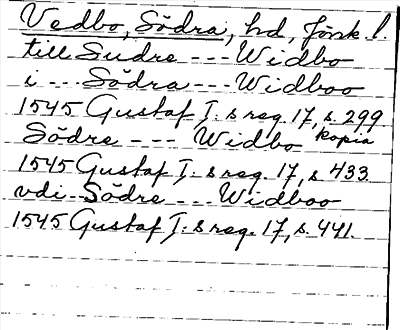 Vedbo, Södra, hd, Jönk. l.
till Sudre --- Widbo
i --- Södra --- Widboo
1545 Gustaf I:s reg. 17, s. 299
Södre --- Widbo kopia
1545 Gustaf I:s reg. 17, s. 433.
vdi Södre --- Widboo
1545 Gustaf I:s reg. 17, s. 441.